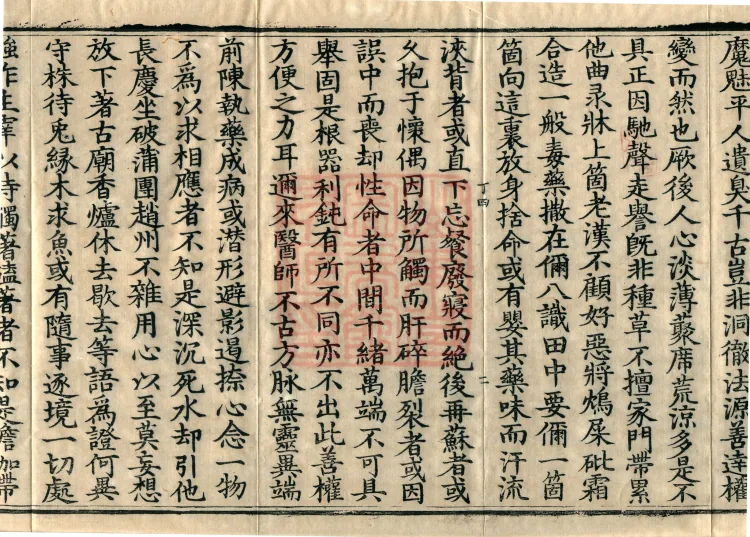 魔魅平人遺臭千古豈非洞徹法源善達權
變而然也厥後人心淡薄藂席荒涼多是不
具正因馳聲走譽旣非種草不擅家門帶累
他曲彔牀上箇老漢不顧好惡將鴆屎砒霜
合造一般毒藥撒在儞八識田中要儞一箇
箇向這裏放身捨命或有嬰其藥味而汗流
丁四 二
浹背者或直下忘餐廢寢而絶後再蘇者或
久抱于懷偶因物所觸而肝碎膽裂者或因
誤中而喪却性命者中間千緒萬端不可具
舉固是根器利鈍有所不同亦不出此善權
方便之力耳邇來醫師不古方脉無靈異端
前陳執藥成病或潛形避影遏捺心念一物
不爲以求相應者不知是深沉死水却引他
長慶坐破蒲團趙州不雜用心以至莫妄想
放下著古廟香爐休去歇去等語爲證何異
守株待兎緣木求魚或有隨事逐境一切處
強作主宰以待觸著磕著者不知是擔枷帶